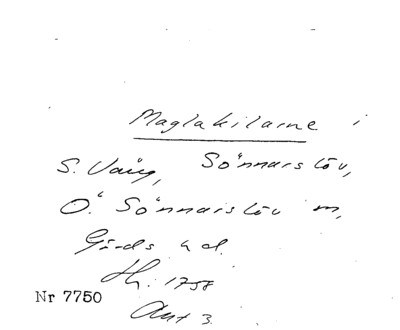 Maglakilarne i
S. Vång, Sönnarslöv,
Ö. Sönnarslöv m,
Gärds hd.
Hh. 1758
Akt 3.
Nr 7750